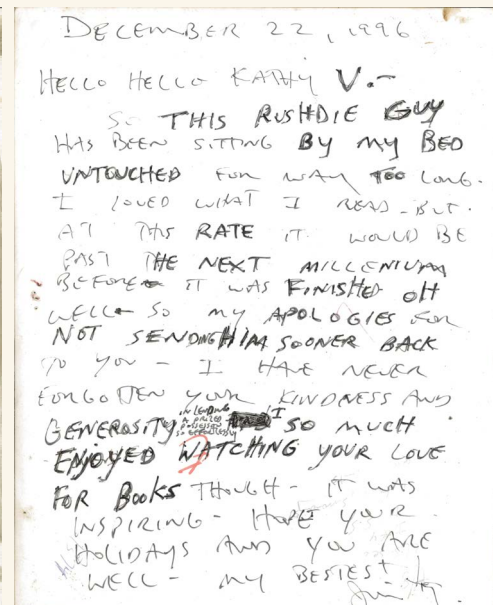 DECEMBER 22, 1996
HELLO HELLO KATHY V.-
SO THIS RUSHDIE GUY
HAS BEEN SITTING BY MY BED
UNTOUCHED FOR WAY TOO LONG.
I LOVED WHAT I READ - BUT.
AT THIS RATE IT WOULD BE
PAST THE NEXT MILLENIUM
BEFORE IT WAS FINISHED OH
WELL - SO MY APOLOGIES FOR
NOT SENDING HIM SOONER BACK
TO YOU - I HAVE NEVER
FORGOTTEN YOUR KINDNESS AND
GENEROSITY IN LENDING A PRIZED POSSESSION SO EFFORTLESSLY I SO MUCH
ENJOYED WATCHING YOUR LOVE
FOR BOOKS THOUGH - IT WAS
INSPIRING - HOPE YOUR
HOLIDAYS AND YOU ARE
WELL - MY BESTEST